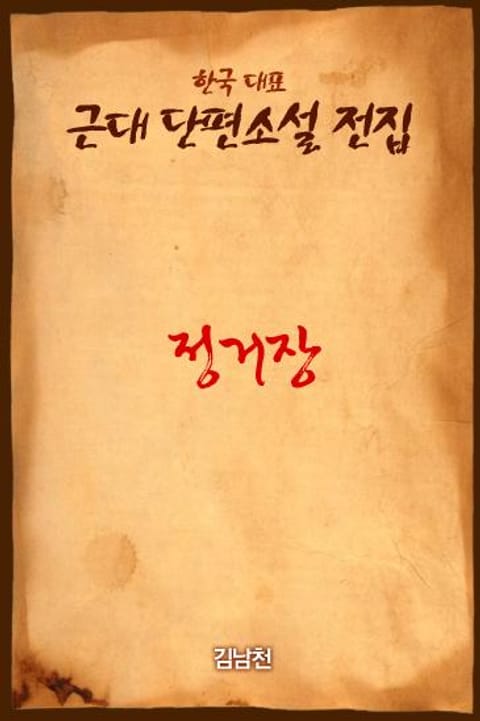 한국 대표
근대 단편소설 전집
정거장
김남천